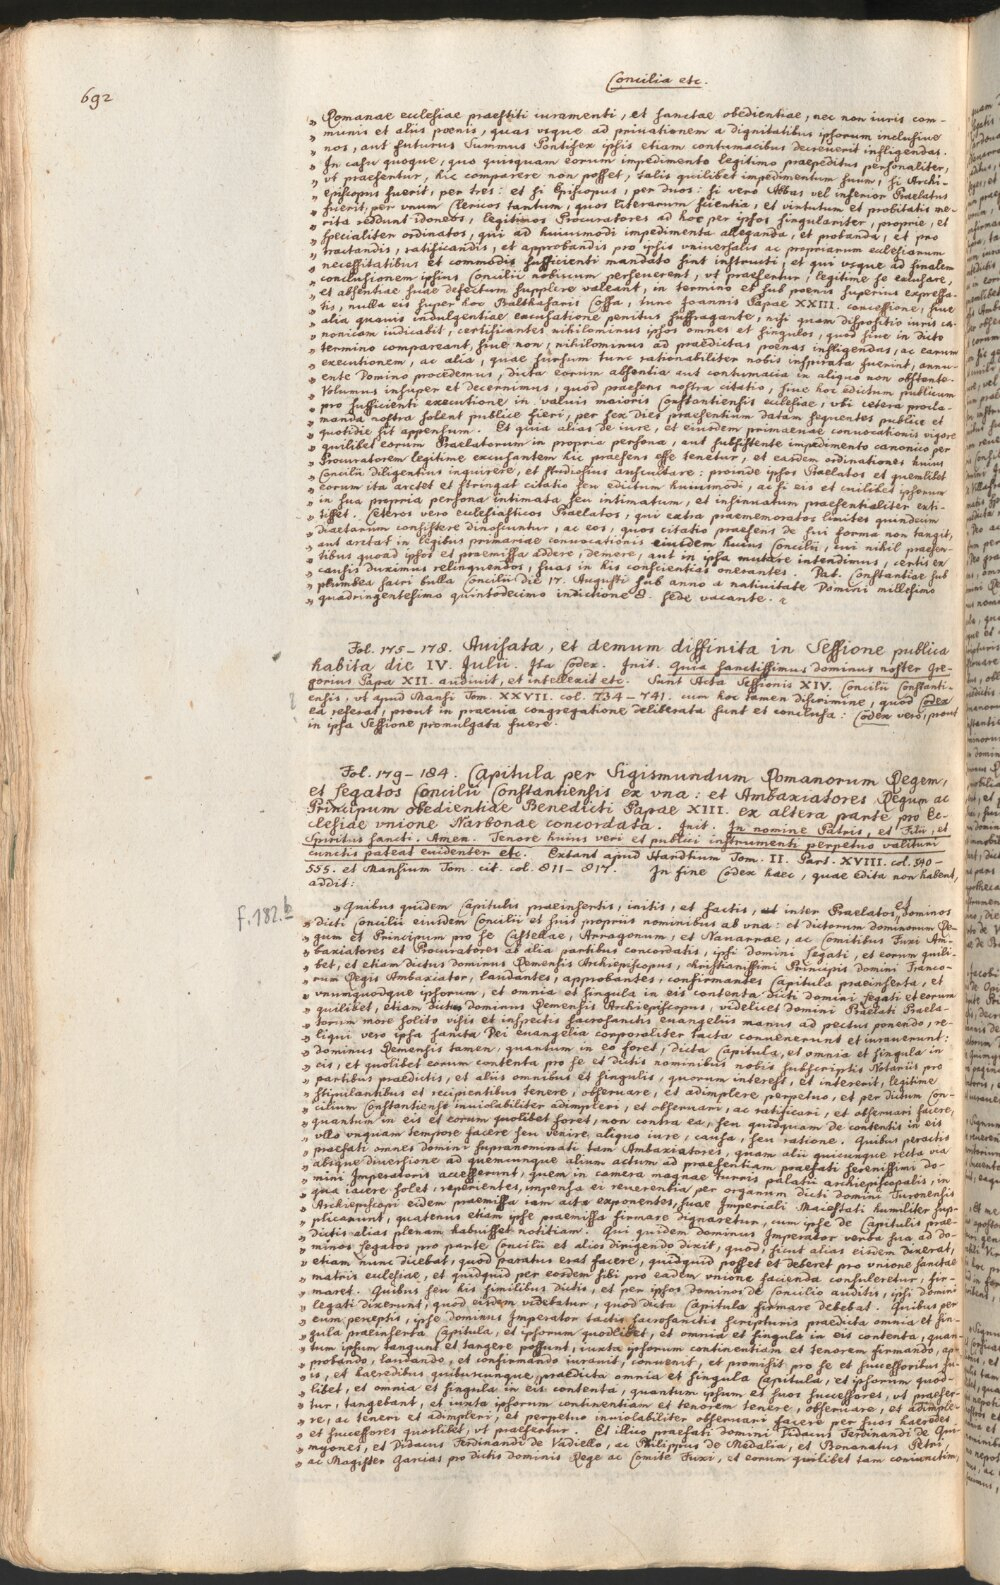 692
Concilia etc.
„ Romanae ecclesiae praestiti iuramenti, et sanctae obedientiae, nec non iuris com-
„ munis et aliis poenis, quas vsque ad priuationem a dignitatibus ipsorum inclusiue
„ nos, aut futurus Summus Pontifex ipsis etiam contumacibus decreuerit infligendas.
„ In casu quoque, quo quisquam eorum impedimento legitimo praepeditus personaliter,
„ vt praefertur, hic comparere non posset, talis quilibet impedimentum suum, si Archi-
„ episcopus fuerit, per tres: et si Episcopus, per duos: si vero Abbas vel inferior Praelatus
„ fuerit, per vnum Clericos tantum, quos literarum scientia, et virtutum et probitatis me-
„ rita reddunt idoneos, legitimos Procuratores ad hoc per ipsos singulariter, proprie, et
„ specialiter ordinatos, qui ad huiusmodi impedimenta alleganda, et probanda, et pro
„ tractandis, ratificandis, et approbandis pro ipsis vniuersalis ac propriarum ecclesiarum
„ necessitatibus et commodis sufficienti mandato sint instructi, et qui vsque ad finalem
„ conclusionem ipsius Concilii nobiscum perseuerent, vt praefertur, legitime se excusare,
„ et absentiae suae defectum supplere valeant, in termino et sub poenis superius expressa-
„ tis, nulla eis super hoc Balthasaris Cossa, tunc Joannis Papae XXIII. concessione, siue
„ alia quauis indulgentiae excusatione penitus suffragante, nisi quam dispositio iuris ca-
„ nonicam iudicabit, certificantes nihilominus ipsos omnes et singulos, quod siue in dicto
„ termino compareant, siue non, nihilominus ad praedictas poenas infligendas, ac earum
„ executionem, ac alia, quae sursum tunc rationabiliter nobis inspirata fuerint, annu-
„ ente Domino procedemus, dicta eorum absentia aut contumacia in aliquo non obstante.
„ Volumus insuper et decernimus, quod praesens nostra citatio, siue hoc edictum publicum
„ pro sufficienti executione in valuis maioris Constantiensis ecclesiae, vbi cetera procla-
„ manda nostra solent publice fieri, per sex dies praesentium datam sequentes publice et
„ quotidie sit appensum. Et quia alias de iure, et eiusdem primaeuae conuocationis vigore
„ quilibet eorum Praelatorum in propria persona, aut subsistente impedimento canonico per
„ Procuratorem legitime excusantem hic praesens esse tenetur, et easdem ordinationes huius
„ Concilii diligentius inquirere, et studiosius auscultare: proinde ipsos Praelatos et quemlibet
„ eorum ita arctet et stringat citatio seu edictum huiusmodi, ac si eis et cuilibet ipsorum
„ in sua propria persona intimata seu intimatum, et insinuatum praesentialiter exti-
„ tisset. Ceteros vero ecclesiasticos Praelatos, qui extra praememoratos limites quindecim
„ diaetarum consistere dinoscuntur, ac eos, quos citatio praesens de sui forma non tangit,
„ aut arctat in legibus primariae conuocationis eiusdem huius Concilii, cui nihil praesen-
„ tibus quoad ipsos et praemissa addere, demere, aut in ipsa mutare intendimus, certis ex
„ causis duximus relinquendos, suas in his conscientias onerantes. Dat. Constantiae sub
„ plumbea sacri bulla Concilii die 17. Augusti sub anno a natiuitate Domini millesimo
„ quadringentesimo quintodecimo indictione 8. sede vacante.
Fol. 175–178. Auisata, et demum diffinita in Sessione publica
habita die IV. Julii. Ita Codex. Init. Quia sanctissimus dominus noster Gre-
gorius Papa XII. audiuit, et intellexit etc. Sunt Acta Sessionis XIV. Concilii Constanti-
ensis, vt apud Mansi Tom. XXVII. col. 734–741. cum hoc tamen discrimine, quod Codex
ea referat, prout in praeuia congregatione deliberata sunt et conclusa: Codex vero, prout
in ipsa Sessione promulgata fuere.
Fol. 179–184. Capitula per Sigismundum Romanorum Regem,
et Legatos Concilii Constantiensis ex vna: et Ambaxiatores Regum ac
Principum obedientiae Benedicti Papae XIII. ex altera parte pro Ec-
clesiae vnione Narbonae concordata. Init. In nomine Patris, et Filii, et
Spiritus sancti, Amen. Tenore huius veri et publici instrumenti perpetuo valituri
cunctis pateat euidenter etc. Extant apud Hardtium Tom. II. Part. XVIII. col. 540–
555. et Mansium Tom. cit. col. 811–817. In fine Codex haec, quae edita non habent,
addit:
f. 182.b
„ Quibus quidem Capitulis praeinsertis, initis, et factis, inter Praelatos, et dominos
„ dicti Concilii eiusdem Concilii et suis propriis nominibus ab vna: et dictorum dominorum Re-
„ gum et Principum pro se Castellae, Arragonum, et Nauarrae, ac Comitibus Fuxi Am-
„ baxiatores et Procuratores ab alia partibus concordatis, ipsi domini Legati, et eorum quili-
„ bet, et etiam dictus dominus Remensis Archiepiscopus, christianissimi Principis domini Franco-
„ rum Regis Ambaxiator, laudantes, approbantes, confirmantes Capitula praeinserta, et
„ vnumquodque ipsorum, et omnia et singula in eis contenta dicti domini Legati et eorum
„ quilibet, etiam dictus dominus Remensis Archiepiscopus, videlicet domini Praelati Praela-
„ torum more solito visis et inspectis sacrosanctis euangeliis manus ad pectus ponendo, re-
„ liqui vero ipsa sancta Dei euangelia corporaliter tacta conuenerunt et iurauerunt:
„ dominus Remensis tamen, quantum in eo foret, dicta Capitula, et omnia et singula in
„ eis, et quolibet eorum contenta pro se et dictis nominibus nobis subscriptis Notariis pro
„ partibus praedictis, et aliis omnibus et singulis, quorum interest, et intererit, legitime
„ stipulantibus et recipientibus tenere, obseruare, et adimplere perpetuo, et per dictum Con-
„ cilium Constantiense inuiolabiliter adimpleri, et obseruari, ac ratificari, et obseruari facere,
„ quantum in eis et eorum quolibet foret, non contra ea, seu quidquam de contentis in eis
„ vllo vnquam tempore facere seu venire aliquo iure, causa, seu ratione. Quibus peractis
„ praefati omnes domini supranominati tam Ambaxiatores, quam alii quicunque recta via
„ absque diuersione ad quemcunque alium actum ad praesentiam praefati serenissimi do-
„ mini Imperatoris accesserunt, quem in camera magnae turris palatii archiepiscopalis, in
„ qua iacere solet, reperientes, impensa ei reuerentia per organum dicti domini Turonensis
„ Archiepiscopi eidem praemissa iam acta exponentos, suae Imperiali Maiestati humiliter sup-
„ plicarunt, quatenus etiam ipse praemissa firmare dignaretur, cum ipse de Capitulis prae-
„ dictis alias plenam habuisset notitiam. Qui quidem dominus Imperator verba sua ad do-
„ minos Legatos pro parte Concilii et alios dirigendo dixit, quod, sicut alias eisdem dixerat,
„ etiam nunc dicebat, quod paratus erat facere, quidquid posset et deberet pro vnione sanctae
„ matris ecclesiae, et quidquid per eosdem sibi pro eadem vnione facienda consuleretur, fir-
„ maret. Quibus seu his similibus dictis, et per ipsos dominos de Concilio auditis, ipsi domini
„ legati dixerunt, quod eisdem videbatur, quod dicta Capitula firmare debebat. Quibus per
„ eum perceptis, ipse dominus Imperator tactis sacrosanctis scripturis praedicta omnia et sin-
„ gula praeinserta Capitula, et ipsorum quodlibet, et omnia et singula in eis contenta, quan-
„ tum ipsum tangunt et tangere possunt, iuxta ipsorum continentiam et tenorem firmando, ap-
„ probando, laudando, et confirmando iurauit, conuenit, et promisit pro se et successoribus su-
„ is, et haeredibus quibuscunque praedicta omnia et singula Capitula, et ipsorum quod-
„ libet, et omnia et singula in eis contenta, quantum ipsum et suos successores, vt praefer-
„ tur, tangebant, et iuxta ipsorum continentiam et tenorem tenere, obseruare, et adimple-
„ re, ac teneri et adimpleri, et perpetuo inuiolabiliter obseruari facere per suos haeredes
„ et successores quoslibet, vt praefertur. Et illico praefati domini Didacus Ferdinandi de Qui-
„ myones, et Didacus Ferdinandi de Vadiello, ac Philippus de Medalia, et Bonanatus Petri,
„ ac Magister Garcias pro dictis dominis Rege ac Comite Fuxi, et eorum quilibet tam coniunctim,